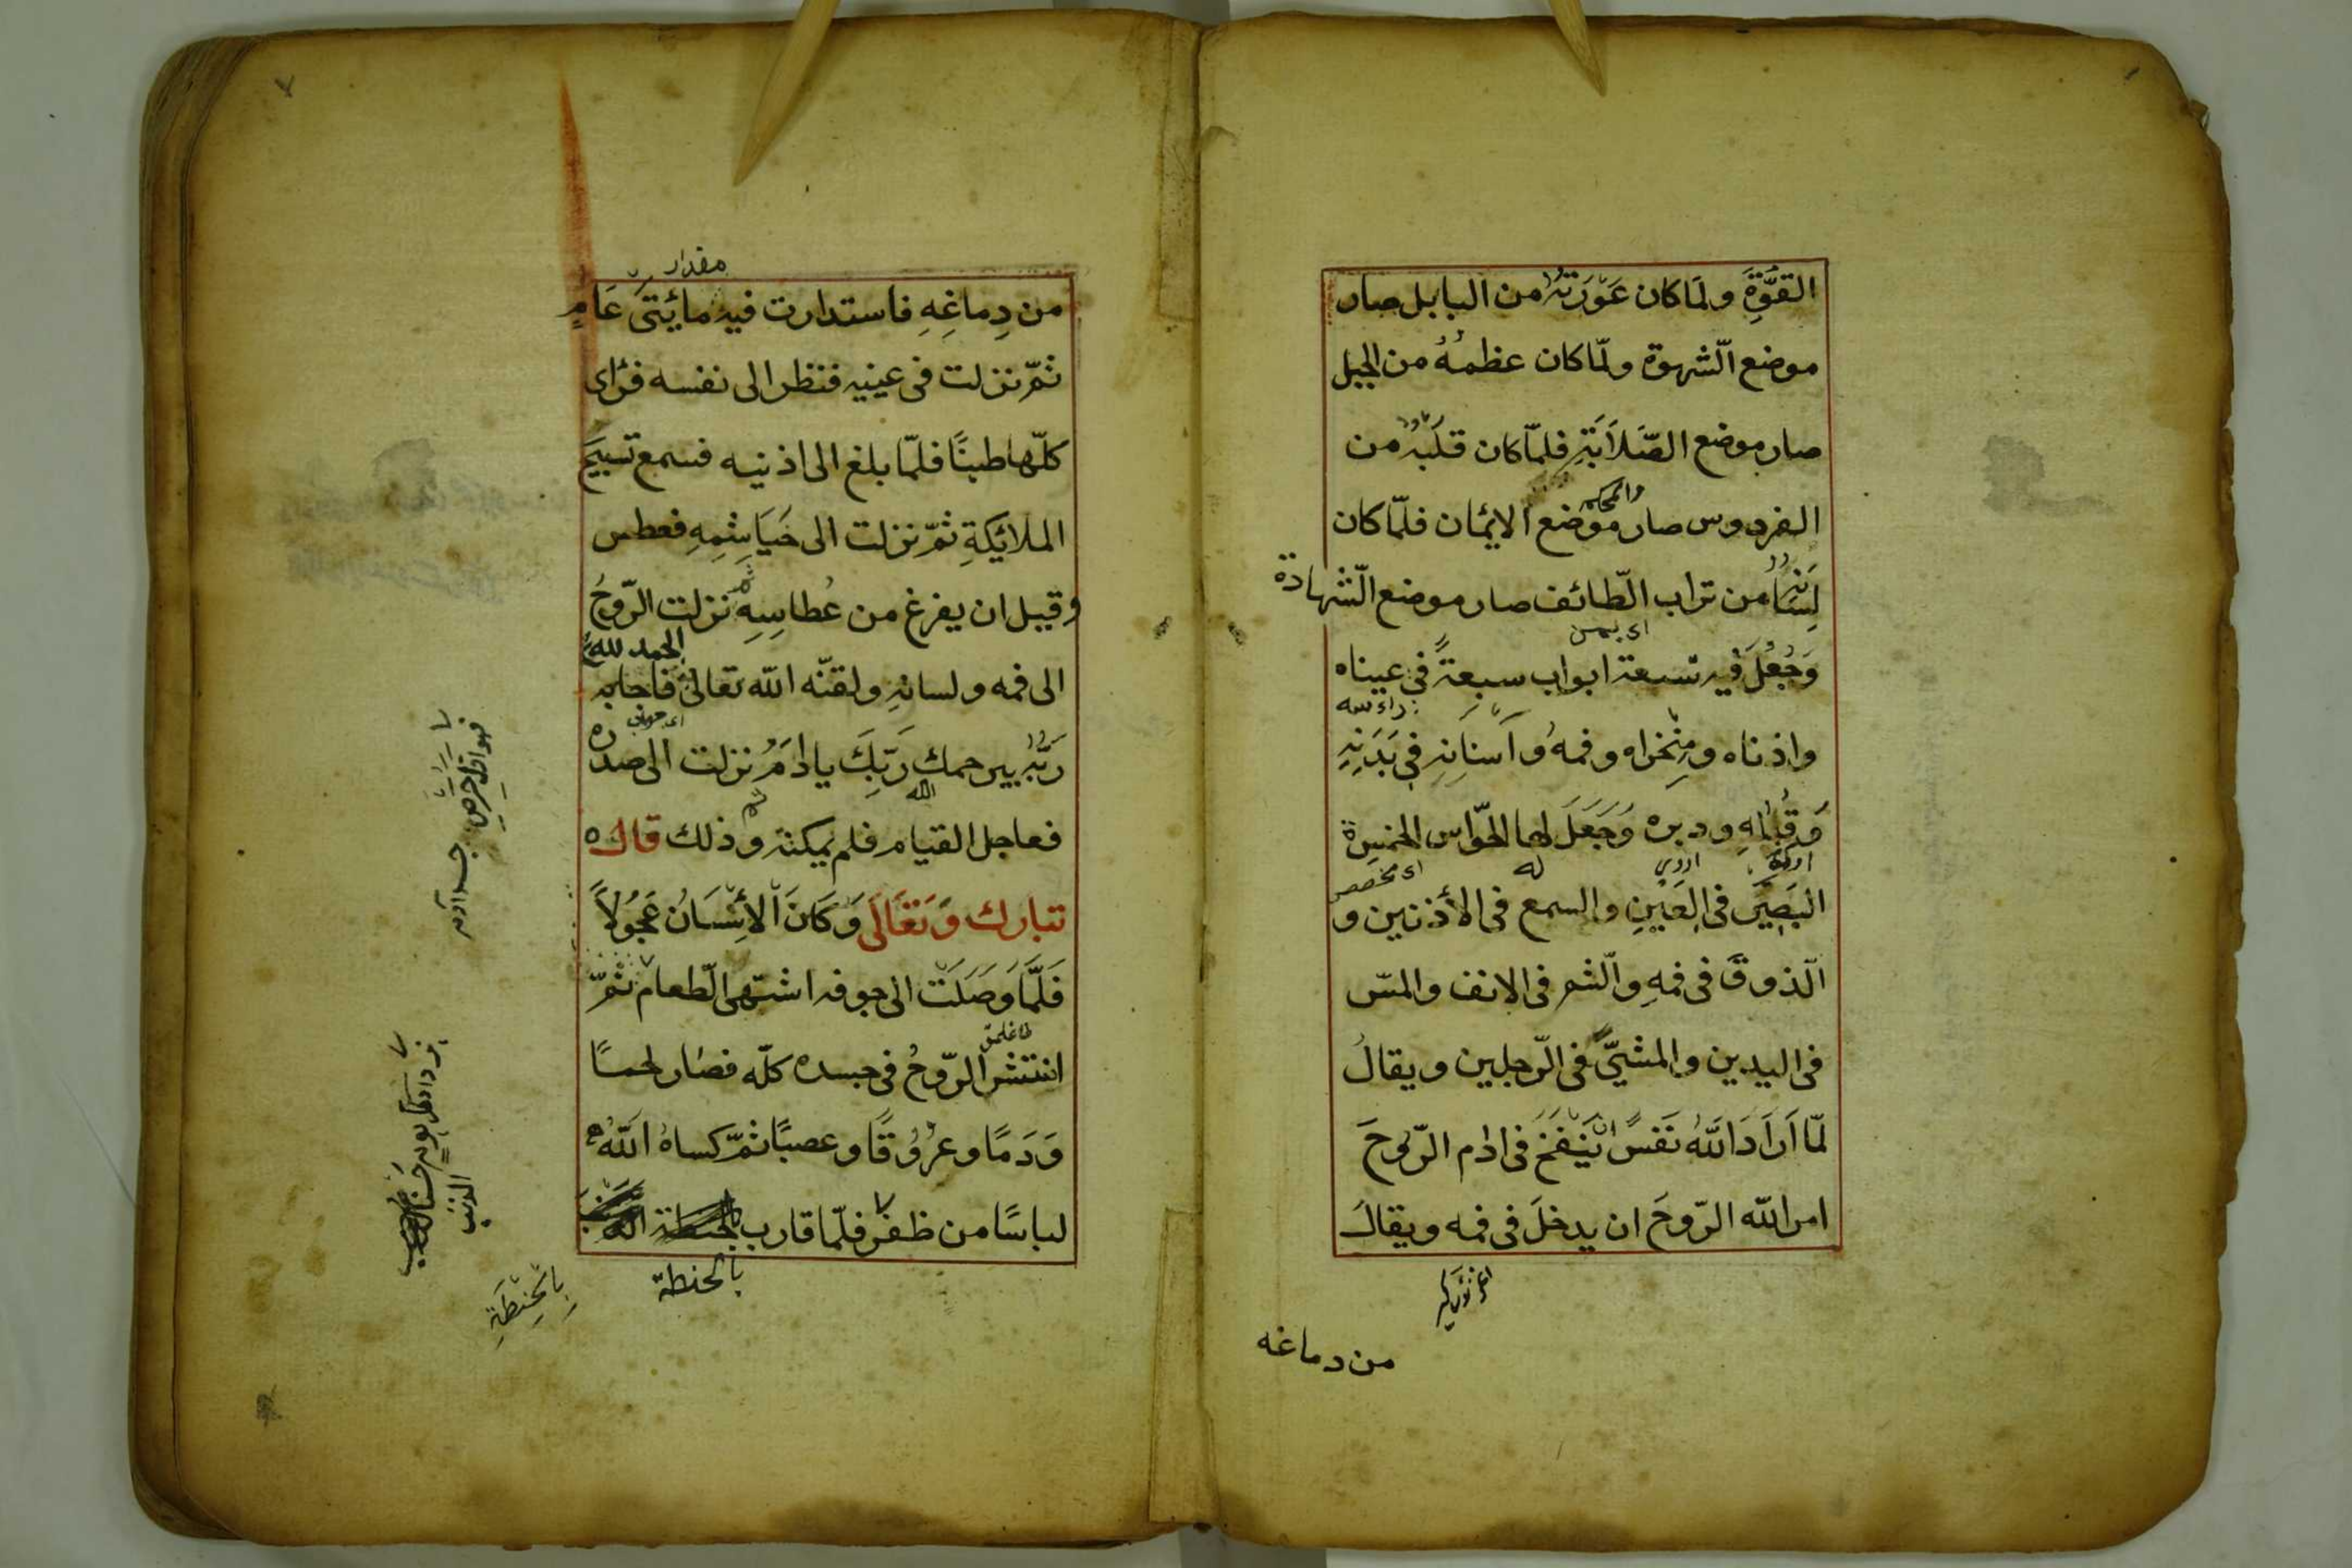 القُوَّةِ ولمَا كان عَوْرَتُهُ من البابل صار
موضع الّشهوة ولمّا كان عظمُهُ من الجبل
صار موضع الصَّلاَبَةِ فلمّا كان قَلْبُهُ من
والمحكمه
الفردوس صار موضع الايمان فلمّا كان
لِسَانُهُ من تراب الّطائف صار موضع الّشهادة
وَجُعُلَ فيه تسعة ابواب سبعةً في عيناه
واذناه ومِنْخراه وفمهُ وآسنانِهِ في بَدَنِهِ
وَقُبُلهِ ودبره وَجَعَلَ لهما الحّواس الخمسة
له
البَصِيَر فى العَيْنِ والسمع فى الأذنين و
الّذوقَ فى فمهِ والّشم فى الانف والمسّ
فى اليدين والمشيَّ فى الّرجلين ويقالُ
لمّا اَرَادَ اللّهُ نَفَسً ان يَنْفَخَ فى ادم الّروحَ
امر اللّه الّروحَ ان يدخلَ فى فمه ويقالُ
من دماغه
٧
مقدار
من دِماغِهِ فاستدارت فيه مايئتىْ عَامٍ
ثمّ نزلت فى عينيه فنظر الى نفسه فرٔاى
كلّها طينًا فلمّا بلغ الى اذنيه فسمع تسبيحَ
الملائِكةِ ثمّ نزلت الى خَيَاشِمِهِ فعطس
وقبل ان يفرغ من عُطاسِهِ نزلت الّروحُ
الحمد لله
الى فمه ولسانهِ ولقنّه اللّه تعالى فاجابه
رَبُّهُ يرحمك رَبِّكَ يا ادَمُ نزلت الى صدره
اللّه
فعاجل القيام فلم يمكنه وذلك قاله
تبارك وَتَعَالَى وَكَانَ اْلأِنْسَانُ عَجُولاً
فَلَمَّا وَصَلَتْ الى جوفه اشتهى الّطعام ثمّ
انتشر الّروحُ فى جسده كلّه فصار لحمًا
وَدَمًا وعُرُوقًا وعصبًا ثمّ كساهُ اللّهُ
لباسًا من ظفر فلمّا قارب
بالحنطة
بِاْلحِنْطَةِ